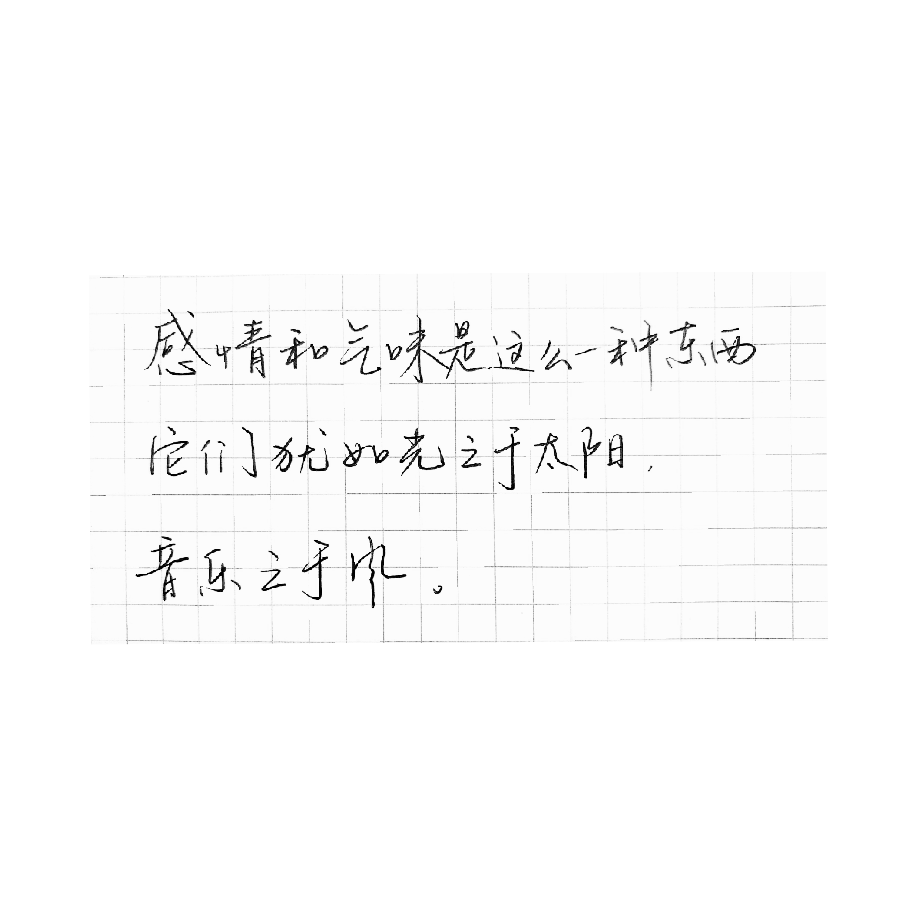 感情和气味是这么一种东西
它们犹如光之于太阳，
音乐之于风。